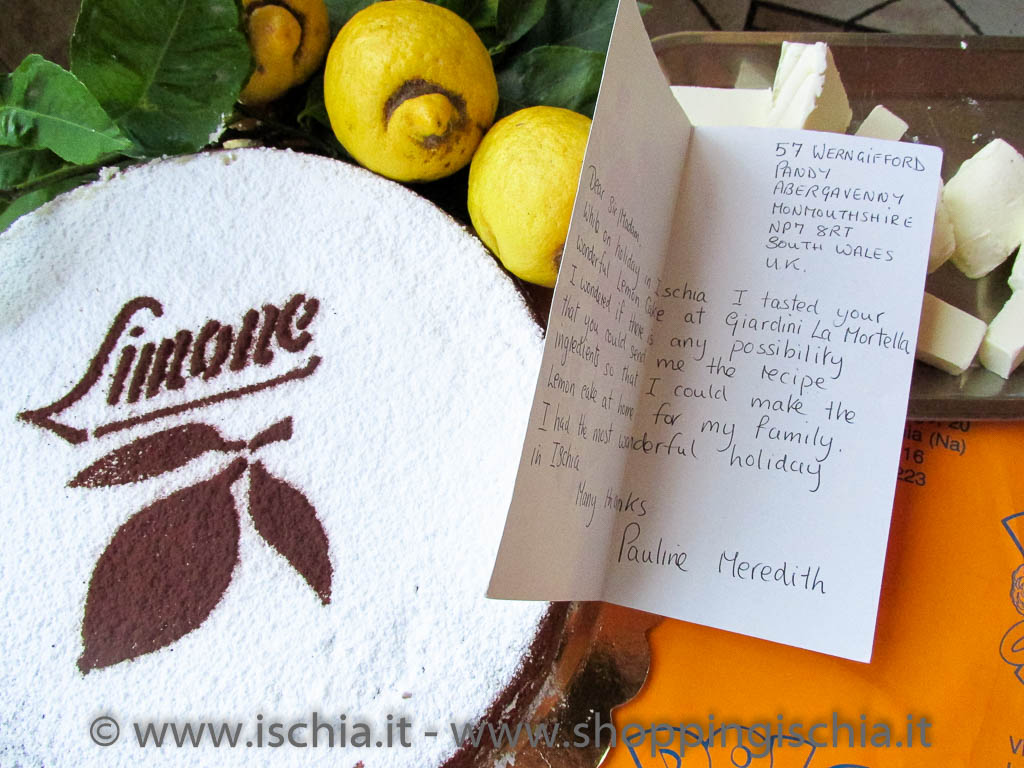 Limone
57 WERNGIFFORD
PANDY
ABERGAVENNY
MONMOUTHSHIRE
NP7 8RT
SOUTH WALES
U.K.
Dear Sir/Madam.
Whils on holiday in Ischia I tasted your
wonderful Lemon Cake at Giardini La Mortella
I wondered if there is any possibility
that you could send me the recipe
ingredients so that I could make the
Lemon cake at home for my family.
I had the most wonderful holiday
in Ischia
Many thanks
Pauline Meredith
20
la (Na)
16
223
© www.ischia.it - www.shoppingischia.it